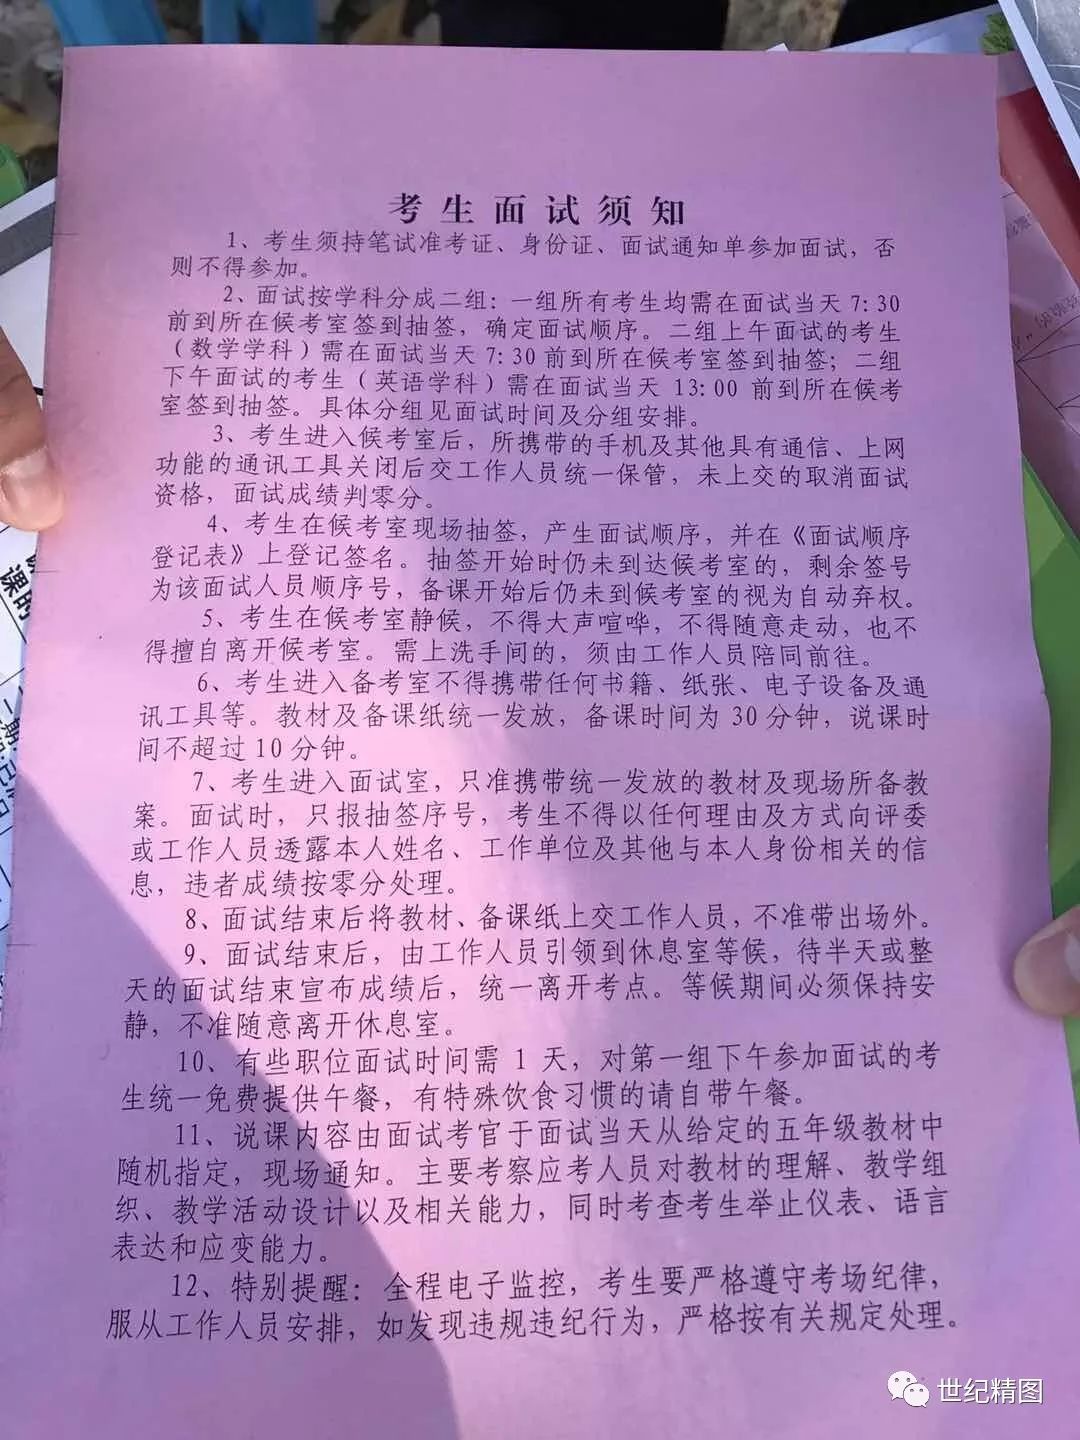 考生面试须知
1、考生须持笔试准考证、身份证、面试通知单参加面试，否
则不得参加。
2、面试按学科分成二组：一组所有考生均需在面试当天 7:30
前到所在候考室签到抽签，确定面试顺序。二组上午面试的考生
（数学学科）需在面试当天 7:30 前到所在候考室签到抽签；二组
下午面试的考生（英语学科）需在面试当天 13:00 前到所在候考
室签到抽签。具体分组见面试时间及分组安排。
3、考生进入候考室后，所携带的手机及其他具有通信、上网
功能的通讯工具关闭后交工作人员统一保管，未上交的取消面试
资格，面试成绩判零分。
4、考生在候考室现场抽签，产生面试顺序，并在《面试顺序
登记表》上登记签名。抽签开始时仍未到达候考室的，剩余签号
为该面试人员顺序号，备课开始后仍未到候考室的视为自动弃权。
5、考生在候考室静候，不得大声喧哗，不得随意走动，也不
得擅自离开候考室。需上洗手间的，须由工作人员陪同前往。
6、考生进入备考室不得携带任何书籍、纸张、电子设备及通
讯工具等。教材及备课纸统一发放，备课时间为 30 分钟，说课时
间不超过 10 分钟。
7、考生进入面试室，只准携带统一发放的教材及现场所备教
案。面试时，只报抽签序号，考生不得以任何理由及方式向评委
或工作人员透露本人姓名、工作单位及其他与本人身份相关的信
息，违者成绩按零分处理。
8、面试结束后将教材、备课纸上交工作人员，不准带出场外。
9、面试结束后，由工作人员引领到休息室等候，待半天或整
天的面试结束宣布成绩后，统一离开考点。等候期间必须保持安
静，不准随意离开休息室。
10、有些职位面试时间需 1 天，对第一组下午参加面试的考
生统一免费提供午餐，有特殊饮食习惯的请自带午餐。
11、说课内容由面试考官于面试当天从给定的五年级教材中
随机指定，现场通知。主要考察应考人员对教材的理解、教学组
织、教学活动设计以及相关能力，同时考查考生举止仪表、语言
表达和应变能力。
12、特别提醒：全程电子监控，考生要严格遵守考场纪律，
服从工作人员安排，如发现违规违纪行为，严格按有关规定处理。
课时
世纪精图